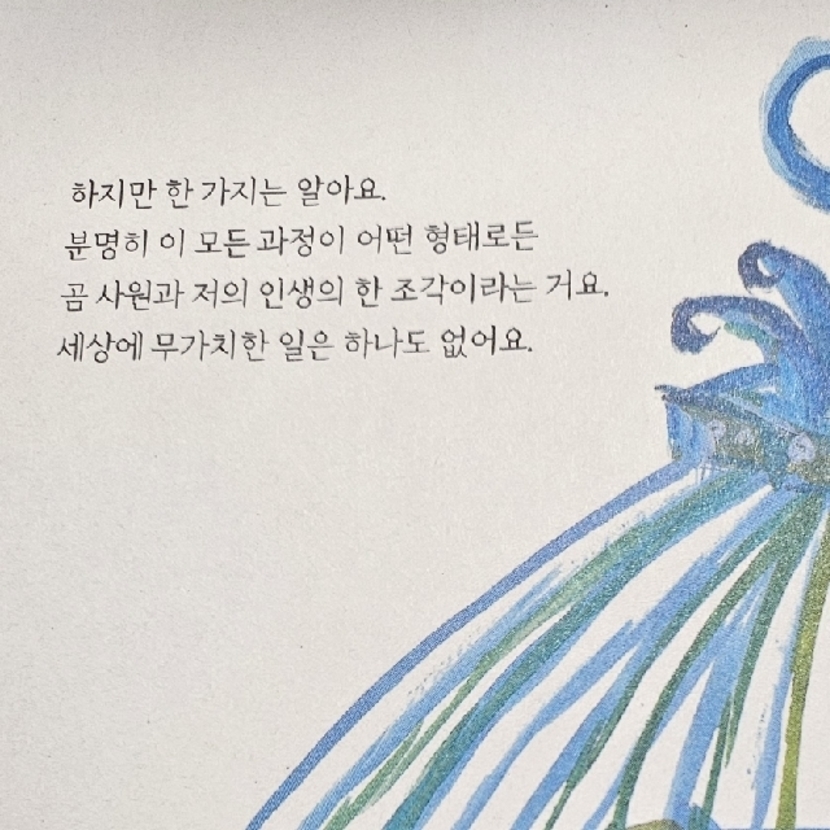 하지만 한 가지는 알아요.
분명히 이 모든 과정이 어떤 형태로든
곰 사원과 저의 인생의 한 조각이라는 거요.
세상에 무가치한 일은 하나도 없어요.